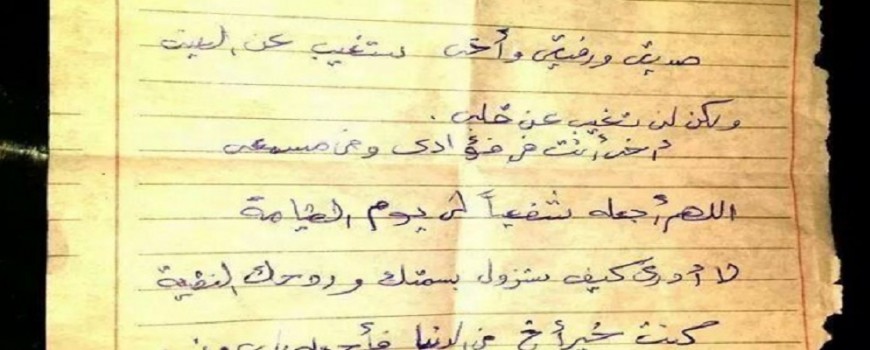 صديق ورفيق وأخي ستغيب عن البيت
ولكن لن تغيب عن قلبي .
أخي أنت في فؤادي وفي مسمعي
اللهم أجعله شفيعاً لي يوم القيامة
لا أدري كيف ستزول بسمتك وروحك النقية
كنت خير أخ في الدنيا